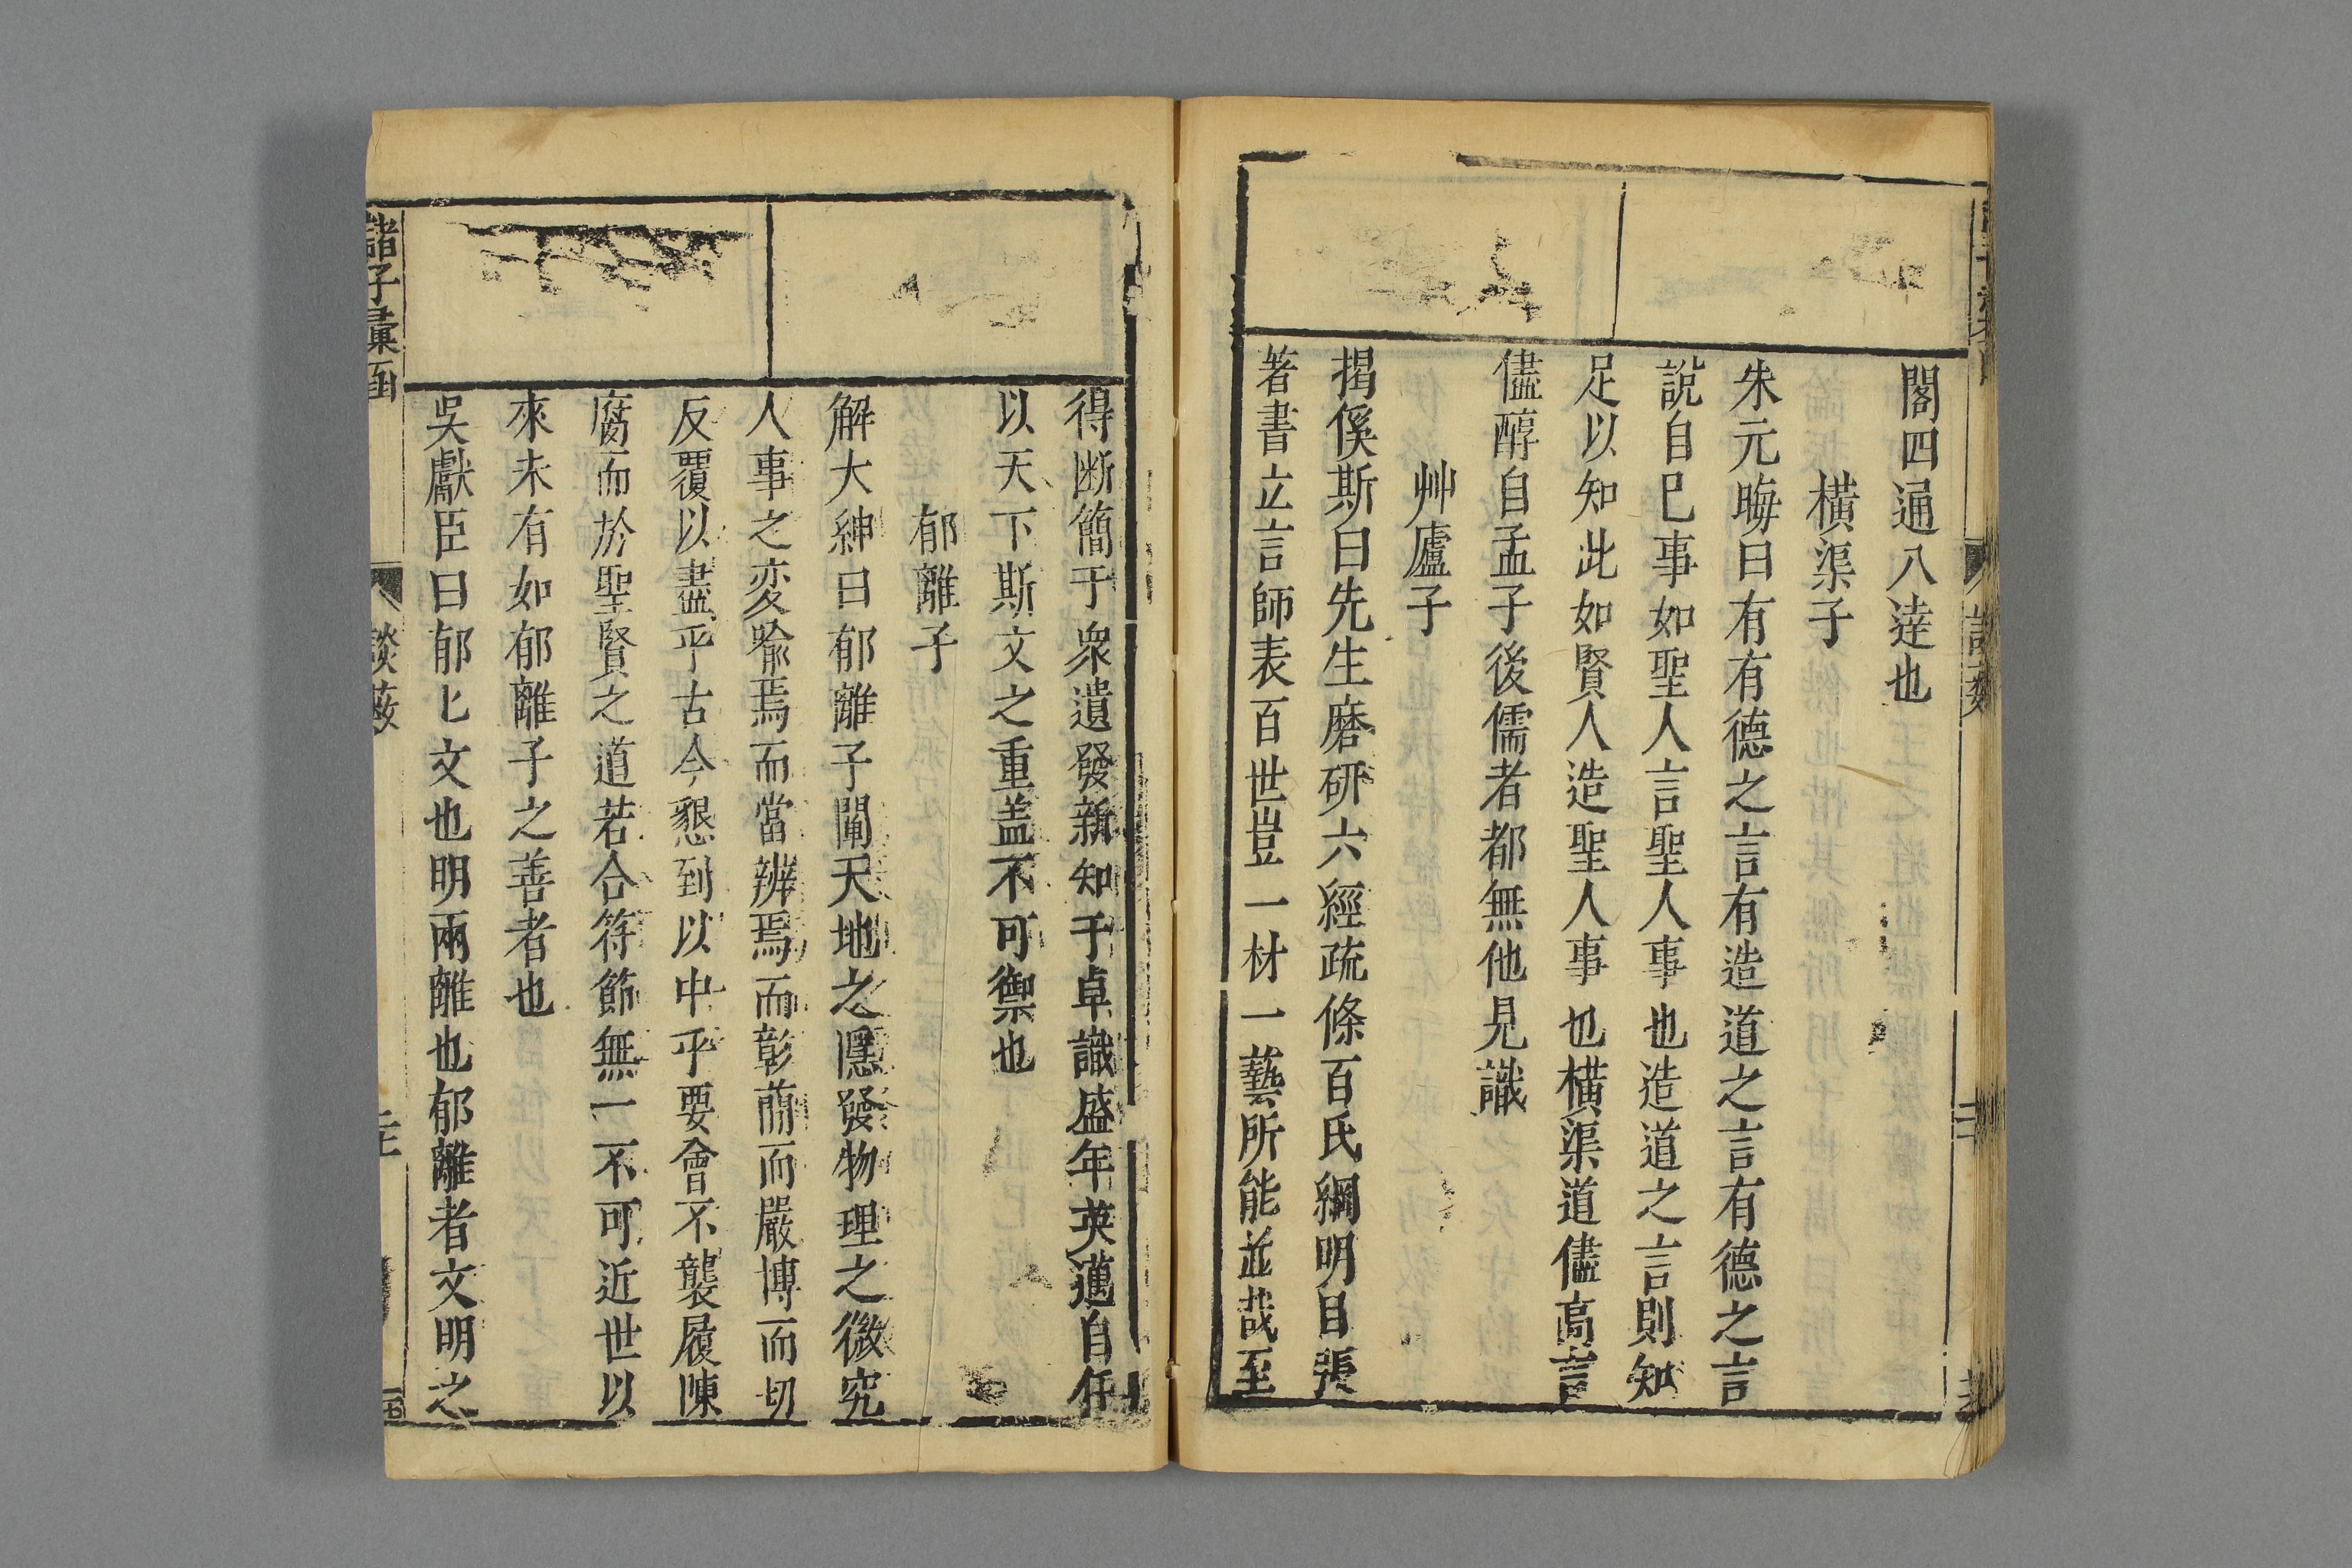 閣四通八達也
橫渠子
朱元晦曰有有德之言有造道之言有德之言
說自巳事如聖人言聖人事也造道之言則知
足以知此如賢人造聖人事也橫渠道儘高言
儘醇自孟子後儒者都無他見識
艸廬子
揭傒斯曰先生磨研六經疏條百氏綱明目張
著書立言師表百世豈一材一藝所能並哉至
得断簡于衆遺發新知于卓識盛年英邁自任
以天下斯文之重盖不可禦也
郁離子
解大紳曰郁離子闡天地之隱發物理之微究
人事之変喻焉而當辨焉而彰蕳而嚴博而切
反覆以盡乎古今懇到以中乎要會不襲履陳
腐而於聖賢之道若合符節無一不可近世以
來未有如郁離子之善者也
吳獻臣曰郁匕文也明兩離也郁離者文明之
諸子彙函
談藪